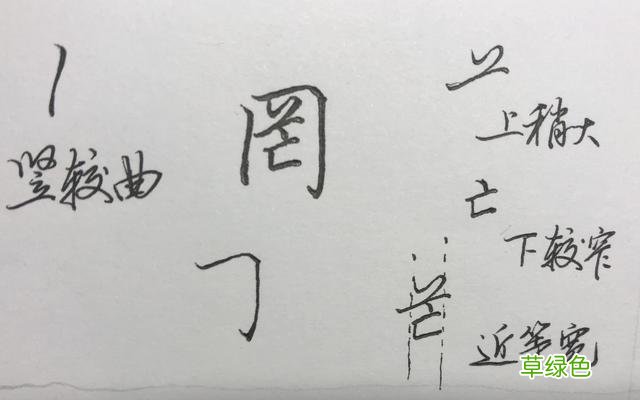 竖较曲
罔
上稍大
亡
下较窄
近等宽
草绿色